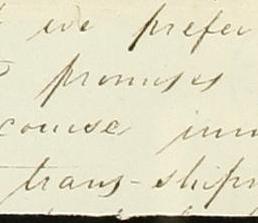 we prefer
promises
course
trans-ship